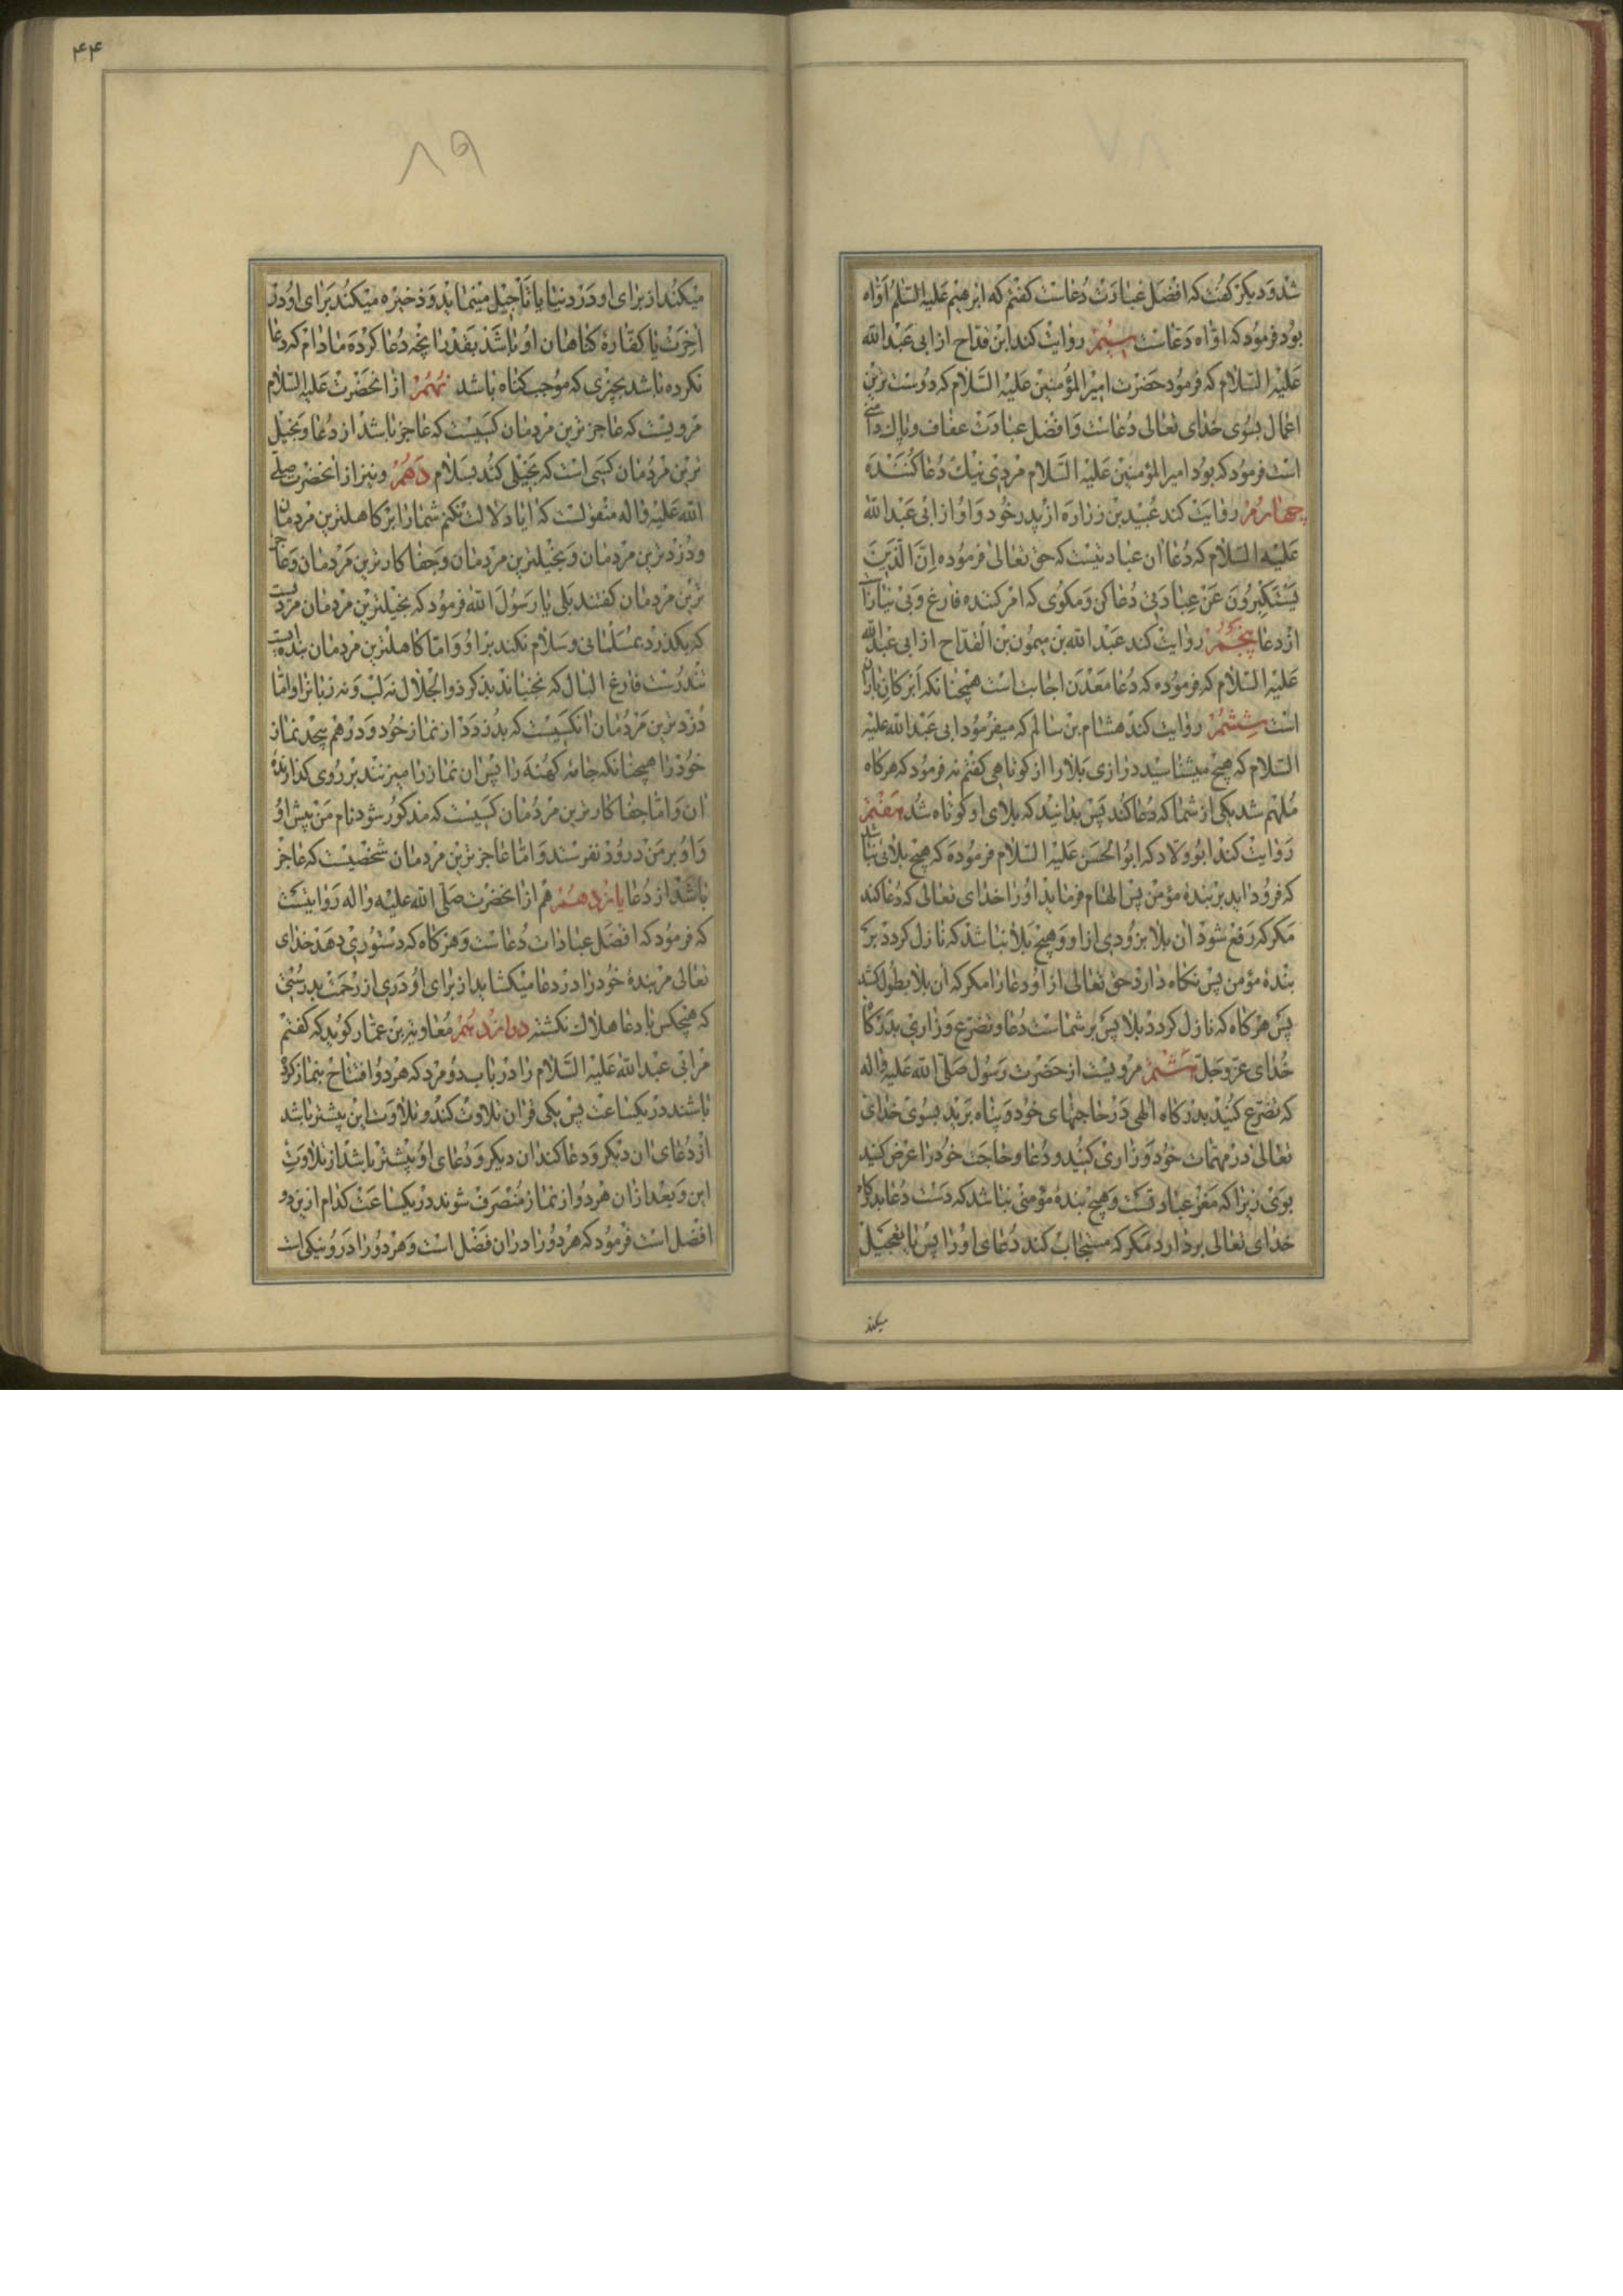 شد و دیکر کفت که افضل عبادت دعاست کفتم که ابرهیم علیه السلم اواه
بود فرمود که اواه دعاست سیم روایت کند ابن قداح از ابی عبد الله
علیه السلام که فرمود حضرت امیر المؤمنین علیه السلام که دوست ترین
اعمال بسوی خدای تعالی دعاست و افضل عبادت عفاف و پاک دامنی
است فرمود که بود امیر المؤمنین علیه السلام مردی نیک دعا کننده
چهارم روایت کند عبید بن زراره از پدر خود و او از ابی عبد الله
علیه السلام که دعا ان عبادتیست که حق تعالی فرموده إن الذین
یستکبرون عن عبادتی دعا کن و مکوی که امر کننده فارغ و بی نیاز است
از دعا پنجم روایت کند عبد الله بن میمون بن القداح از ابی عبد الله
علیه السلام که فرموده که دعا معدن اجابت است همچنانکه ابر کان باران
است ششم روایت کند هشام بن سالم که میفرمود ابی عبد الله علیه
السلام که هیچ میشناسید درازی بلا را از کوتاهی کفتم نه فرمود که هرکاه
ملهم شد یکی از شما که دعا کند پس بدانید که بلای او کوتاه شد هفتم
روایت کند ابو ولاد که ابو الحسن علیه السلام فرموده که هیچ بلائی نباشد
که فرود اید بر بنده مؤمن پس الهام فرماید او را خدای تعالی که دعا کند
مکر که رفع شود ان بلا بزودی از او و هیچ بلا نباشد که نازل کردد بر
بنده مؤمن پس نکاه دارد حق تعالی از او دعا را مکر که ان بلا بطول کشد
پس هرکاه که نازل کردد بلا پس بر شماست دعا و تضرع و زاری بدرکاه
خدای عز و جل هشتم مرویست از حضرت رسول صلی الله علیه و اله
که تضرع کنید بدرکاه الهی در حاجتهای خود و پناه برید بسوی خدای
تعالی در مهمات خود و زاری کنید و دعا و حاجت خود را عرض کنید
بوی زیرا که مغز عبادتست و هیچ بنده مؤمنی نباشد که دست دعا بدرکاه
خدای تعالی بردارد مکر که مستجاب کند دعای او را پس یا تعجیل
میکند
۴۴
۸۹
میکند از برای او در دنیا یا تاجیل مینماید و ذخیره میکند برای او در
اخرت یا کفاره کناهان او باشد بقدر انچه دعا کرده مادام که دعا
نکرده باشد بچیزی که موجب کناه باشد نهم از انحضرت علیه السلام
مرویست که عاجز ترین مردمان کسیست که عاجز باشد از دعا و بخیل
ترین مردمان کسی است که بخیلی کند بسلام دهم و نیز از انحضرت صلی
الله علیه و اله منقولست که ایا دلالت نکنم شما را بر کاهلترین مردمان
و دزد ترین مردمان و بخیلترین مردمان و جفا کار ترین مردمان و عاجز
ترین مردمان کفتند بلی یا رسول الله فرمود که بخیلترین مردمان مردیست
که بکذرد بمسلمانی و سلام نکند بر او و اما کاهلترین مردمان بنده ایست
تندرست فارغ البال که نجنباند بذکر ذو الجلال نه لب و نه زبانرا و اما
دزد ترین مردمان انکسیست که بدزدد از نماز خود و در هم پیچد نماز
خود را همچنانکه جامه کهنه را پس ان نماز را میزنند بر روی کذارنده
ان و اما جفا کار ترین مردمان کسیست که مذکور شود نام من پیش او
و او بر من درود نفرستد و اما عاجز ترین مردمان شخصیست که عاجز
باشد از دعا یازدهم هم از انحضرت صلی الله علیه و اله روایتست
که فرمود که افضل عبادات دعاست و هرکاه که دستوری دهد خدای
تعالی مر بنده خود را در دعا میکشاید از برای او دری از رحمت بدرستی
که هیچکس با دعا هلاک نکشته دوازدهم معاویه بن عمار کوید که کفتم
مر ابی عبد الله علیه السلام را در باب دو مرد که هر دو افتتاح بنماز کرده
باشند در یکساعت پس یکی قران تلاوت کند و تلاوت این پیشتر باشد
از دعای ان دیکر و دعا کند ان دیکر و دعای او بیشتر باشد از تلاوت
این و بعد از ان هر دو از نماز منصرف شوند در یکساعت کدام ازین دو
افضل است فرمود که هر دو را دران فضل است و هر دو را در و نیکی است